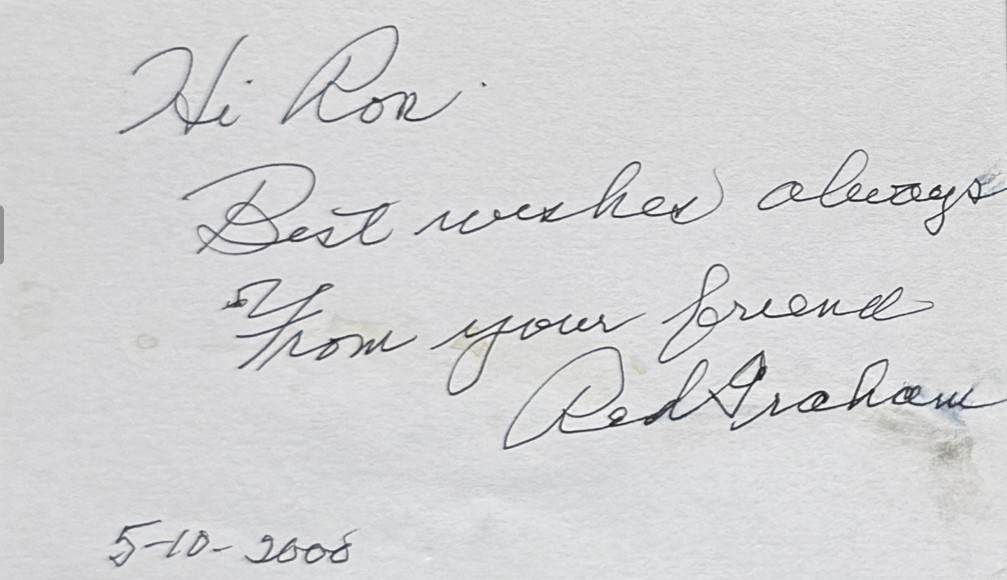 Hi Ron
Best wishes always
From your friend
Red Graham
5-10-2000